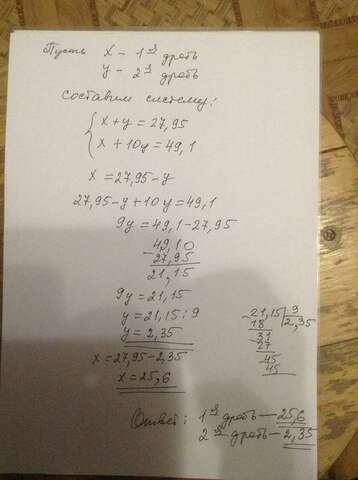 Пусть x - 1я дробь
y - 2я дробь
составим систему:
{ x + y = 27,95
x + 10y = 49,1
x = 27,95 - y
27,95 - y + 10y = 49,1
9y = 49,1 - 27,95
49,10
- 27,95
21,15
9y = 21,15
y = 21,15 : 9
y = 2,35
x = 27,95 - 2,35
x = 25,6
- 21,15 | 9
18 | 2,35
- 31
27
- 45
45
Ответ: 1я дробь - 25,6
2я дробь - 2,35